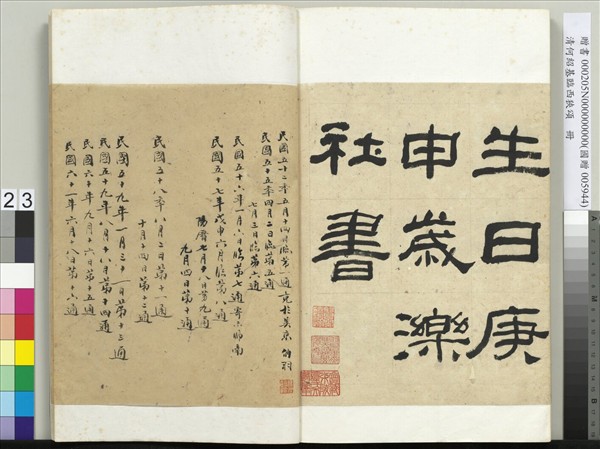 贈書 000205N000000000(國贈 005944)
清何紹基臨西狹頌 冊
生日庚
申歲濼
社書
民國五十二年五月十四日臨第一通竟於美京
民國五十五年四月二日臨第五通
七月三日臨第六通
民國五十六年一月六日臨第七通寄示師南
民國五十七年戊申六月臨第八通
陽曆七月十八日第九通
九月四日第十通
民國五十八年八月二日第十一通
十月十四日第十二通
民國五十九年一月三十一日第十三通
民國五十九年八月十八日第十四通
民國六十年九月十六日第十五通
民國六十一年六月十八日第十六通
23
A
M
B